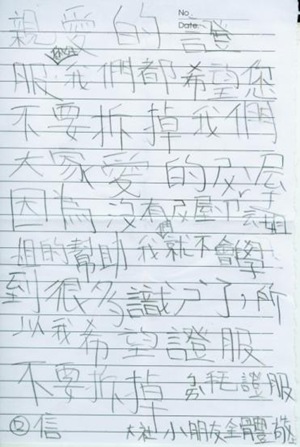 No.
Date
親愛的證
服 我們都希望您
不要拆掉我們
大家愛的屋
因為沒有屋
姐的幫助我就不會學
到很多識了，所
以我希望證服
不要拆掉 證服
②信 小朋友全體敬